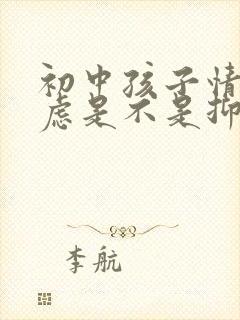 初中孩子情
虑是不是抑
李航